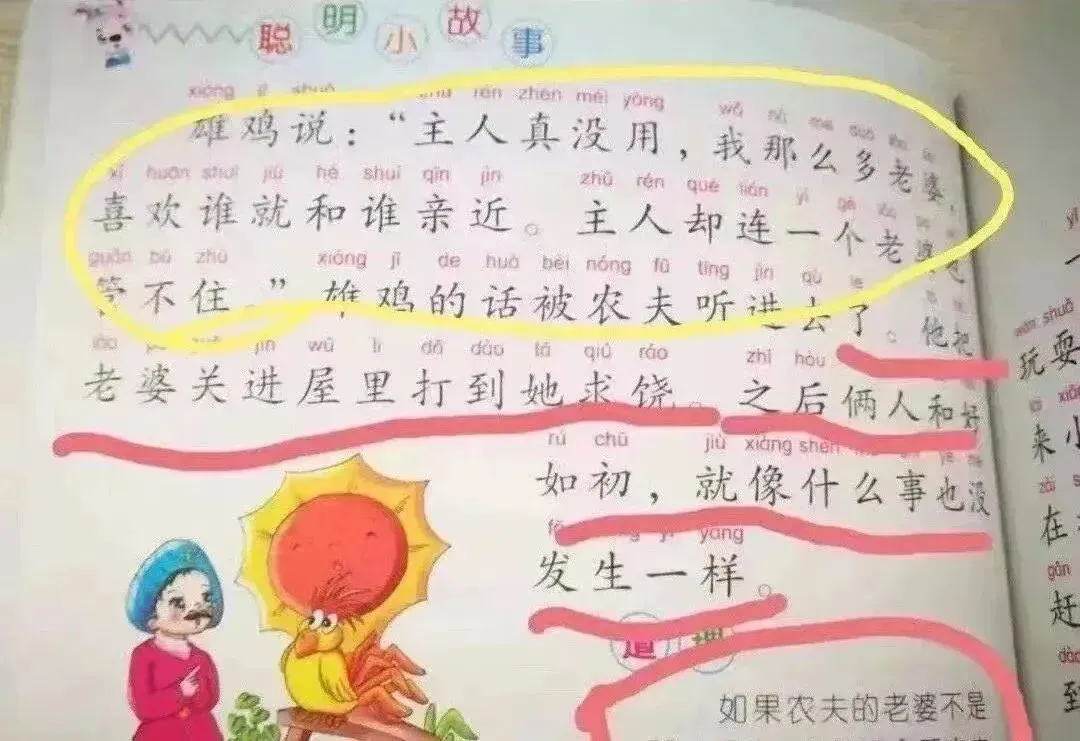 聪明小故事
xióng jī shuō zhǔ rén zhēn méi yòng
雄鸡说：“主人真没用，我那么多老婆，
xǐ huān shuí jiù hé shuí qīn jìn zhǔ rén què lián yí gè
喜欢谁就和谁亲近。主人却连一个老婆也
guǎn bú zhù xióng jī de huà bèi nóng fū tīng jìn qù le
管不住。”雄鸡的话被农夫听进去了。他把
jìn wū lǐ dǎ dào tā qiú ráo zhī hòu
老婆关进屋里打到她求饶。之后俩人和好
rú chū jiù xiàng shén
如初，就像什么事也没
yī yàng
发生一样。
道理
如果农夫的老婆不是
wán shuǎ
玩耍
来小
zài
在
gǎn
赶
dào
到